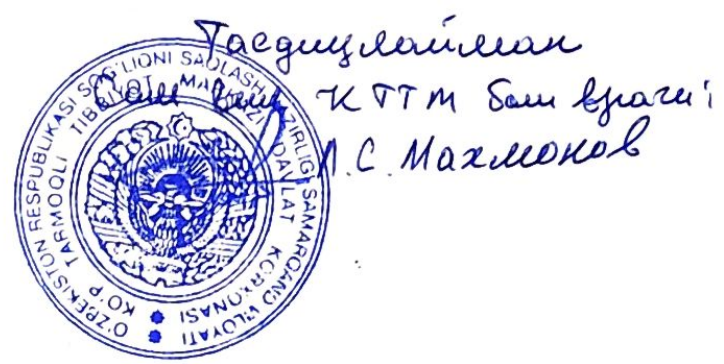 Тасдиқлайман
Сам вил КТТМ бош врачи:
Л.С. Махмонов
O'ZBEKISTON RESPUBLIKASI SOG'LIQNI SAQLASH VAZIRLIGI SAMARQAND VILOYATI
KO'P TARMOQLI TIBBIYOT MARKAZI DAVLAT KORXONASI